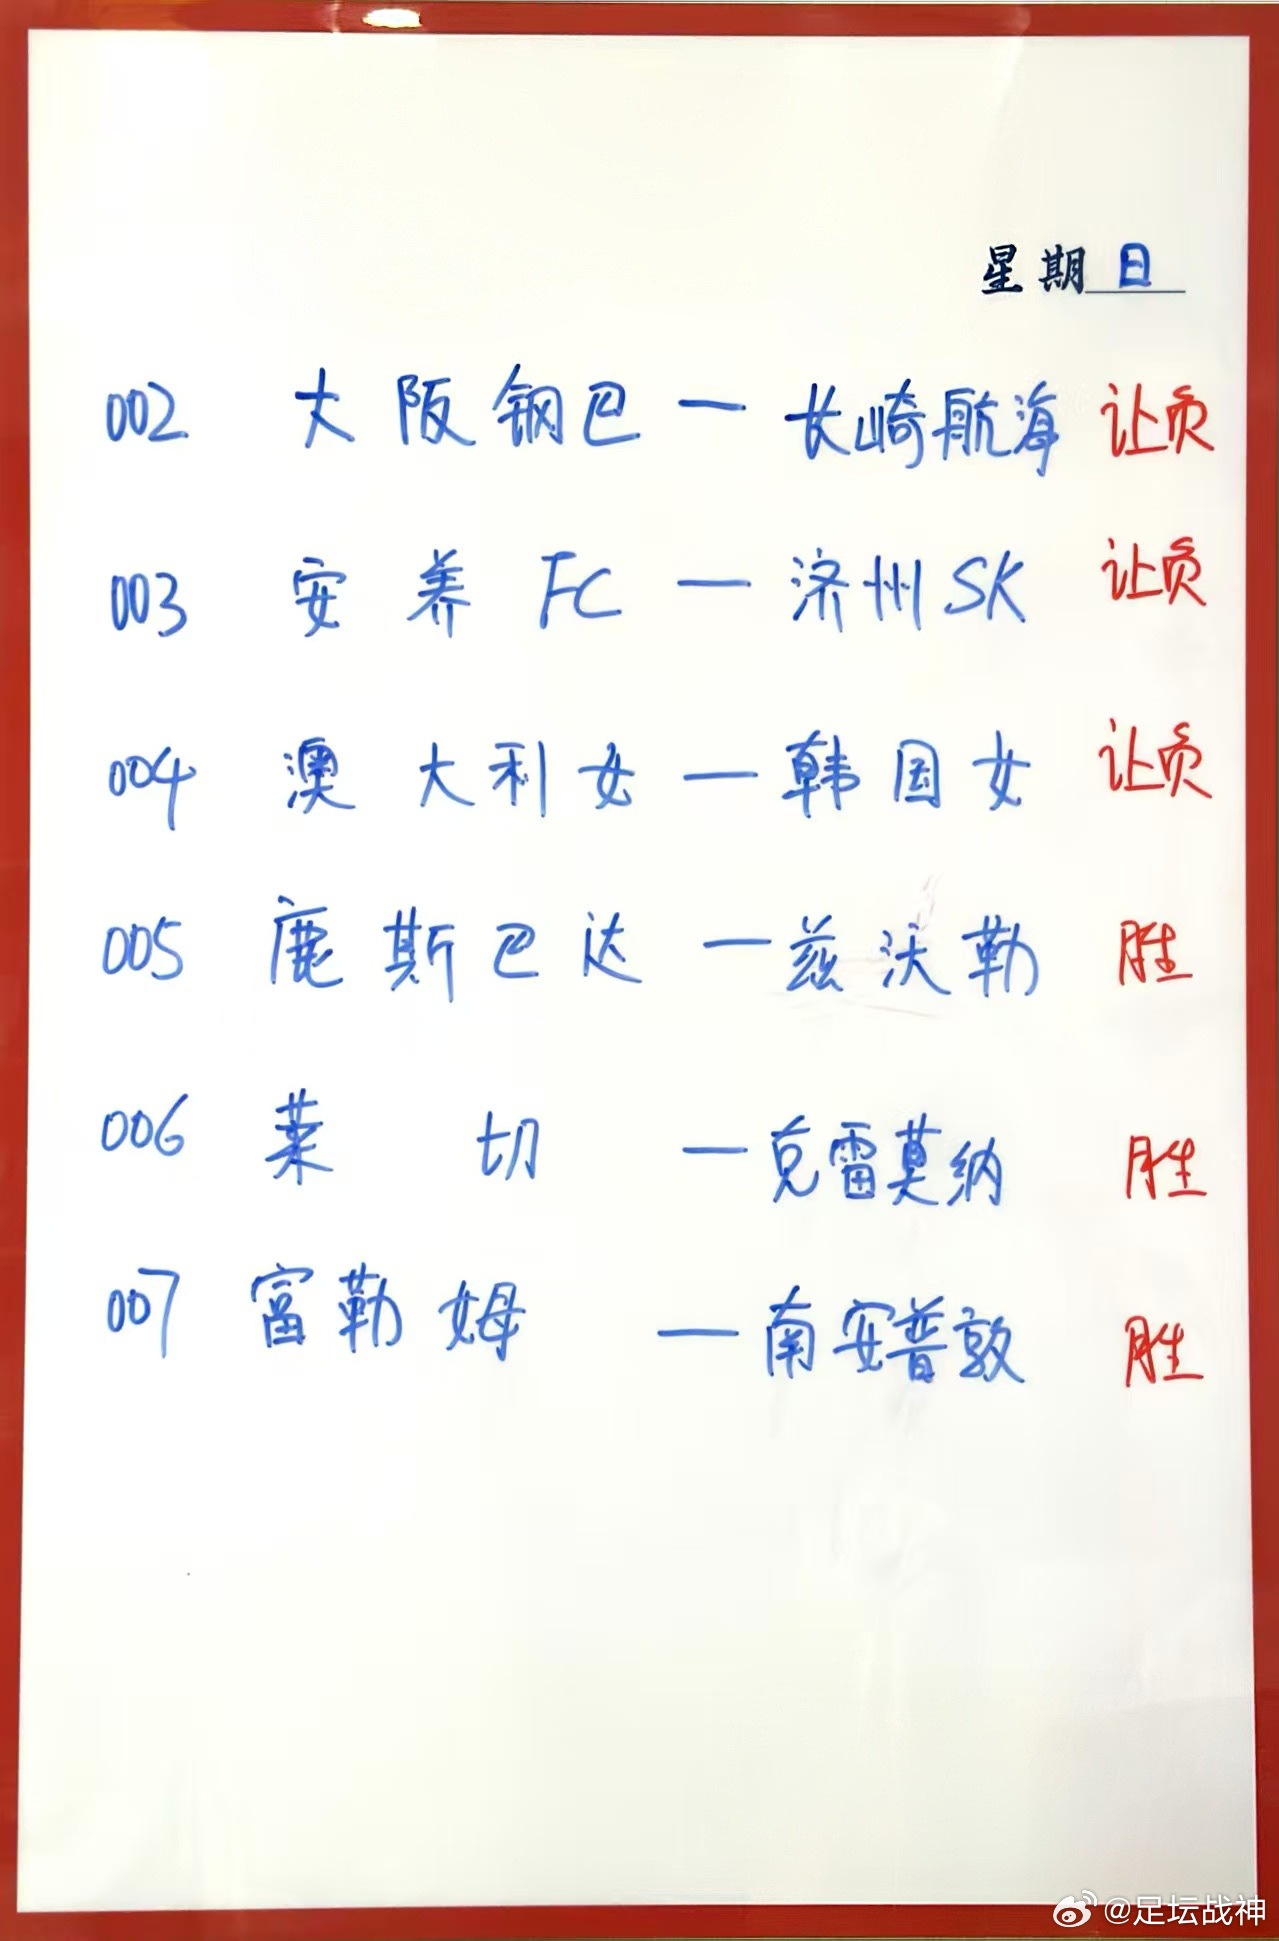 星期日
002 大阪钢巴 — 长崎航海 让负
003 安养FC — 济州SK 让负
004 澳大利女 — 韩国女 让负
005 鹿斯巴达 — 兹沃勒 胜
006 莱切 — 克雷莫纳 胜
007 富勒姆 — 南安普敦 胜
@足坛战神